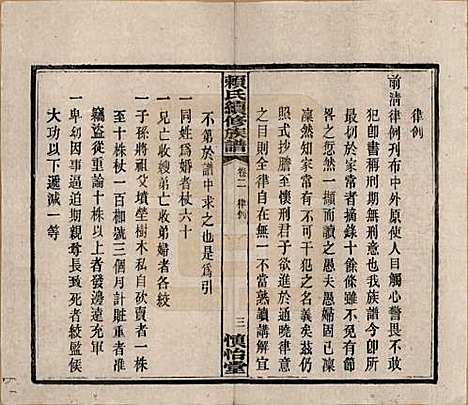 律例
前清律例刊布中外原使人目觸心警畏不敢
犯卽書稱刑期無刑意也我族譜今卽所
最切於家常者摘錄十餘條雖不足以
畧之然一顯而讀之愚夫愚婦固已凜
凜然知家常有不可干犯之名義矣茲仍
照式抄謄至於懷刑君子欲進於通曉律意
之目則全律自在無一不當熟讀講解宜
賴氏續修族譜
卷二 律例
三
慎怡堂
不第於譜中求之也是爲引
一同姓爲婚者杖六十
一兄亡收嫂弟亡收弟婦者各絞
一子孫將祖父墳塋樹木私自砍賣者一株
至十株杖一百枷號三個月計贓重者准
竊盜從重論十株以上者發邊遠充軍
一卑幼因事逼迫期親尊長致死者絞監候
大功以下遞減一等